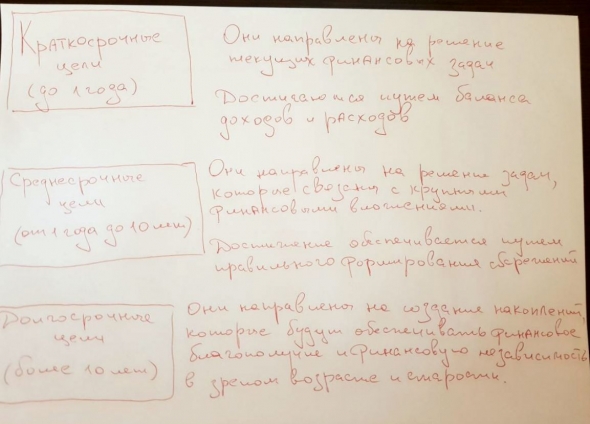 Краткосрочные
цели
(до 1 года)
Они направлены на решение
текущих финансовых задач
Достигаются путем баланса
доходов и расходов
Среднесрочные
цели
(от 1 года до 10 лет)
Они направлены на решение задач,
которые связаны с крупными
финансовыми вложениями.
Достижение обеспечивается путем
правильного формирования сбережений
Долгосрочные
цели
(более 10 лет)
Они направлены на создание накоплений,
которые будут обеспечивать финансовое
благополучие и финансовую независимость
в зрелом возрасте и старости.